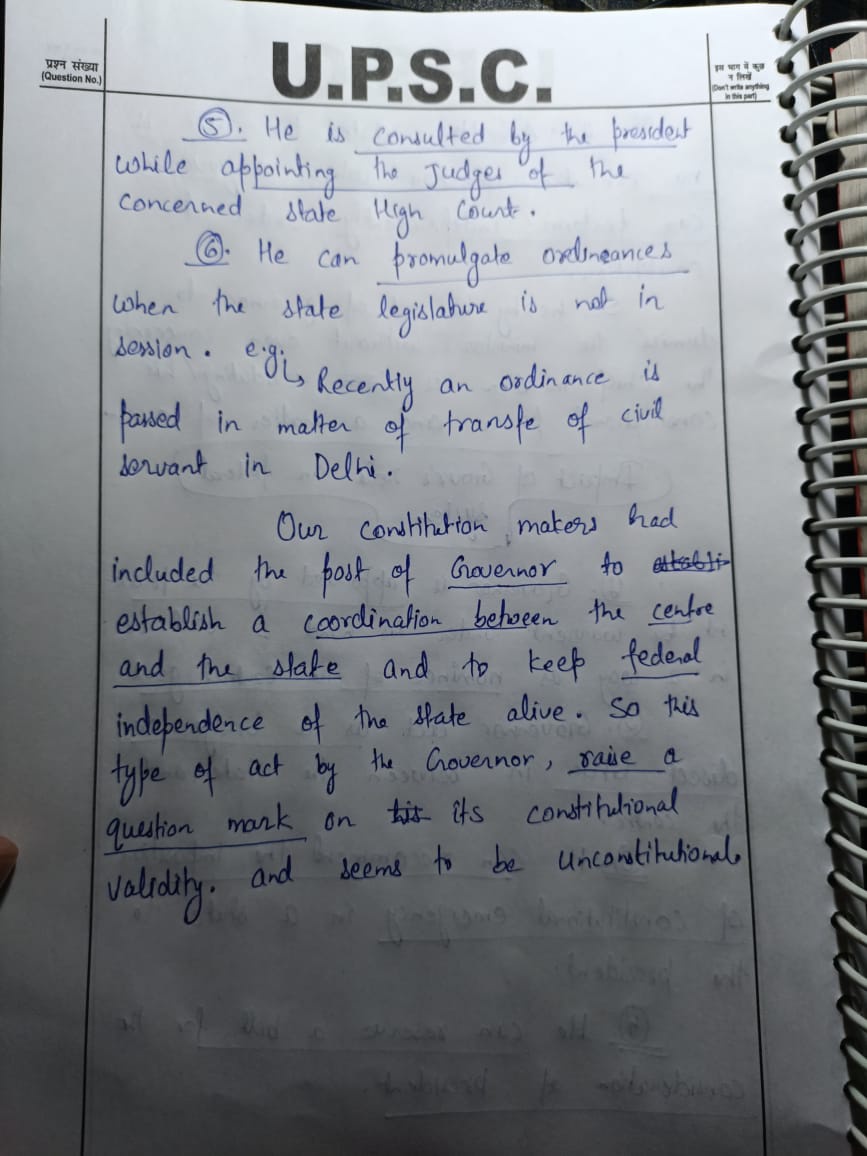 प्रश्न संख्या
(Question No.)
U.P.S.C.
इस भाग में कुछ
न लिखें
(Don't write anything
in this part)
5. He is consulted by the president
while appointing the Judges of the
concerned state High Court.
6. He can promulgate ordineances
when the state legislature is not in
session. e.g.
Recently an ordinance is
passed in matter of transfe of civil
servant in Delhi.
Our constitution makers had
included the post of Governor to establi
establish a coordination between the centre
and the state and to keep federal
independence of the state alive. So this
type of act by the Governor, raise a
question mark on this its constitutional
validity. and seems to be unconstitutional.